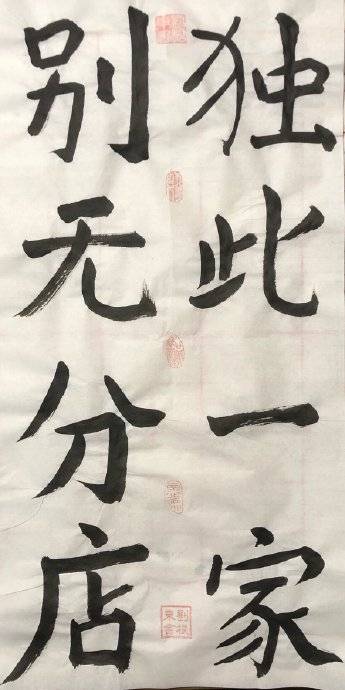 独此一家
别无分店